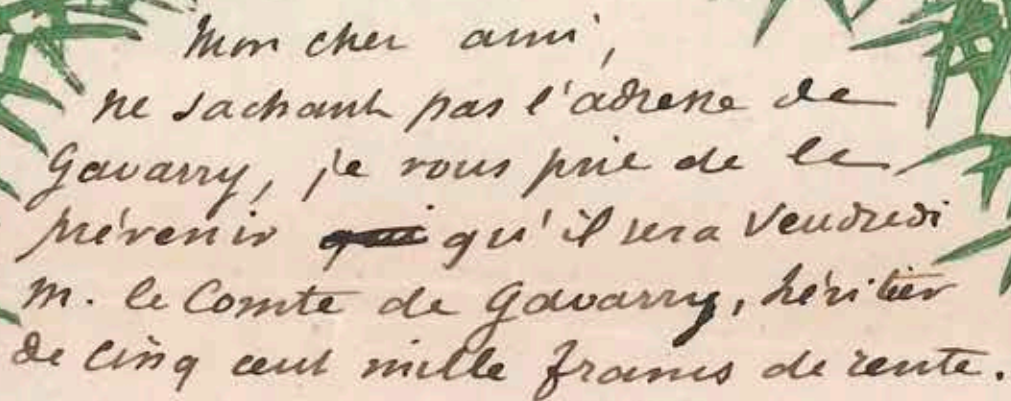 Mon cher ami,
ne sachant pas l'adresse de
Gavarry, je vous prie de le
prévenir qu'il sera Vendredi
M. le Comte de Gavarry, héritier
de cinq cent mille francs de rente.